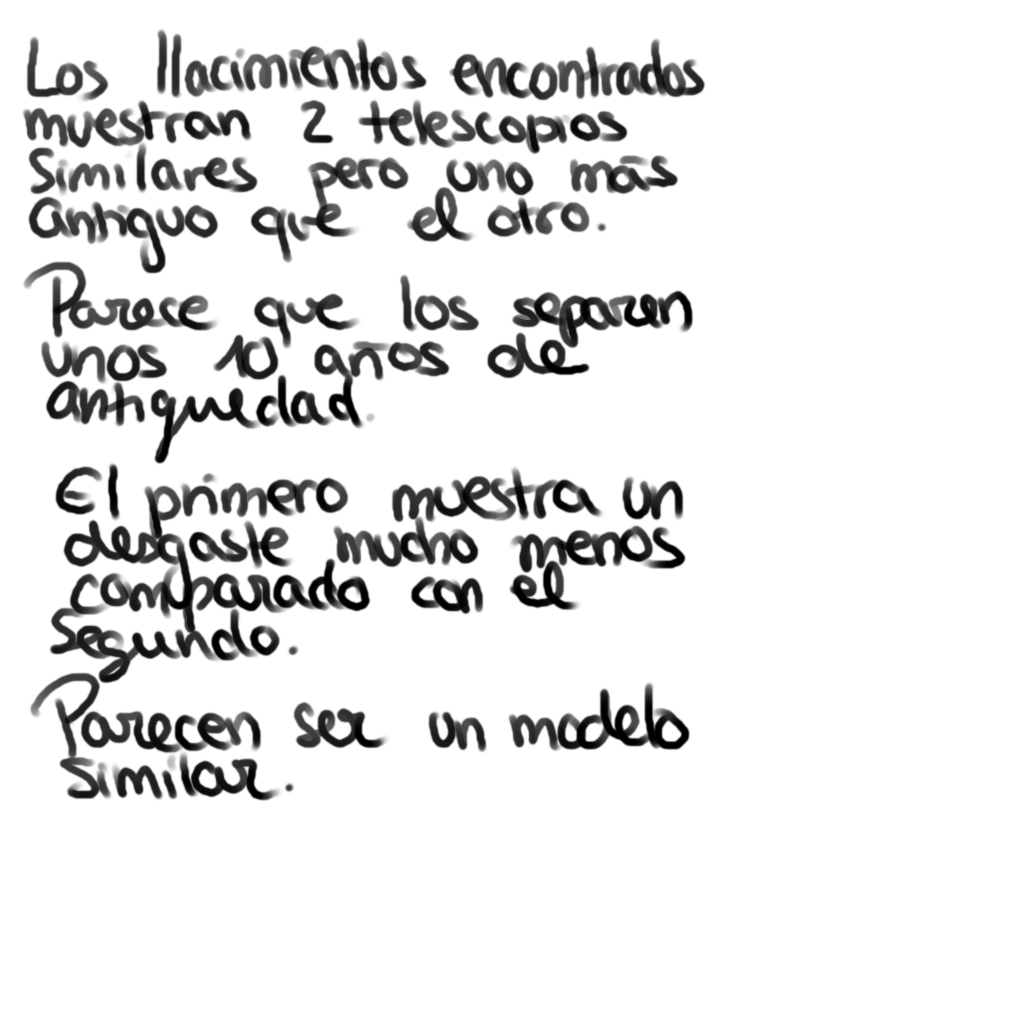 Los llacimientos encontrados
muestran 2 telescopios
Similares pero uno más
antiguo que el otro.
Parece que los separan
unos 10 años de
antiguedad.
El primero muestra un
desgaste mucho menos
comparado con el
segundo.
Parecen ser un modelo
similar.